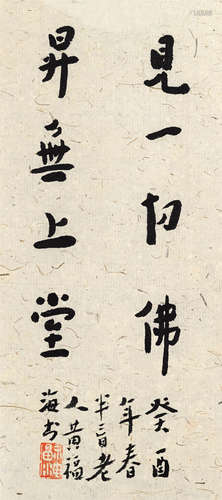 見一切佛
昇無上堂
癸酉
年春
半盲老
人黃福
海書